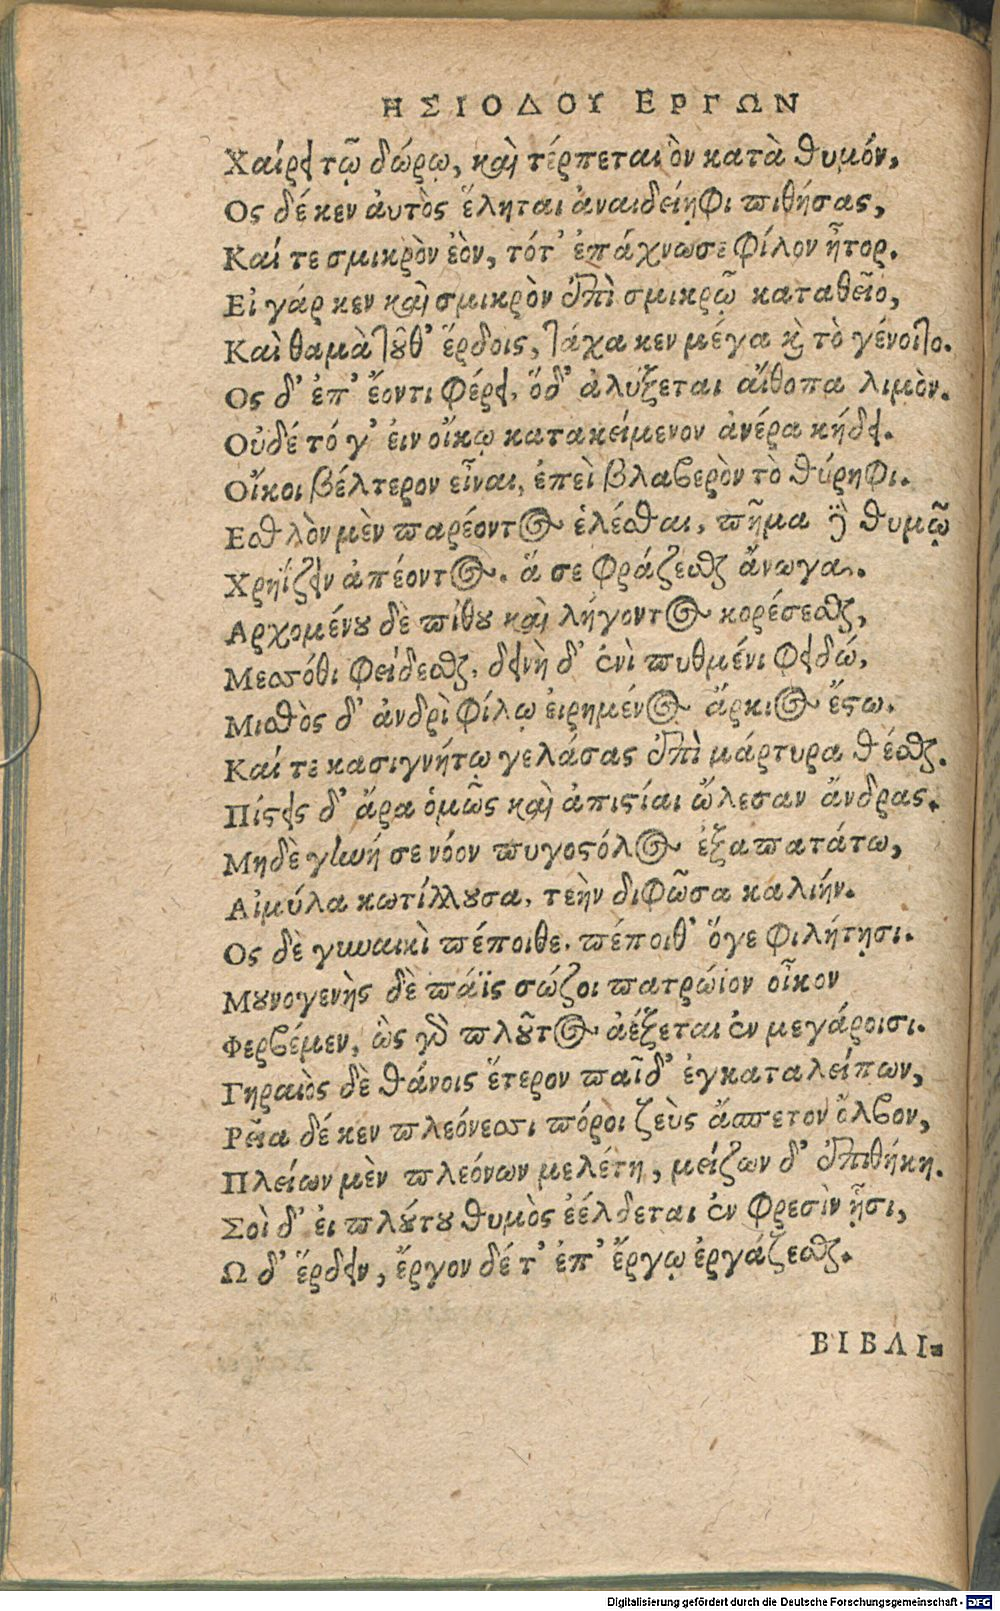 ΗΣΙΟΔΟΥ ΕΡΓΩΝ
Χαίρει τῷ δώρῳ, καὶ τέρπεται ὃν κατὰ θυμόν,
Ος δέ κεν ἀυτὸς ἕληται ἀναιδείηφι πιθήσας,
Καί τε σμικρὸν ἐὸν, τότ' ἐπάχνωσε φίλον ἦτορ.
Εἰ γάρ κεν καὶ σμικρὸν ἐπὶ σμικρῷ καταθεῖο,
Καὶ θαμὰ τοῦθ' ἔρδοις, τάχα κεν μέγα καὶ τὸ γένοιτο.
Ος δ' ἐπ' ἔοντι φέρει, ὅδ' ἀλύξεται αἴθοπα λιμὸν.
Οὐδέ τό γ' ἐιν οἴκῳ κατακείμενον ἀνέρα κήδει.
Οἴκοι βέλτερον εἶναι, ἐπεὶ βλαβερὸν τὸ θύρηφι.
Εσθλὸν μὲν παρέοντος ἑλέσθαι, πῆμα δὲ θυμῷ
Χρηΐζειν ἀπέοντος. ἅ σε φράζεσθαι ἄνωγα.
Αρχομένου δὲ πίθου καὶ λήγοντος κορέσεσθαι,
Μεσσόθι φείδεσθαι, δεινὴ δ' ἐνὶ πυθμένι φειδώ,
Μισθὸς δ' ἀνδρὶ φίλῳ ἐιρημένος ἄρκιος ἔστω.
Καί τε κασιγνήτῳ γελάσας ἐπὶ μάρτυρα θέσθαι.
Πίστεις δ' ἄρα ὁμῶς καὶ ἀπιστίαι ὤλεσαν ἄνδρας.
Μηδὲ γυνή σε νόον πυγοστόλος ἐξαπατάτω,
Αἱμύλα κωτίλλουσα, τεὴν διφῶσα καλιήν.
Ος δὲ γυναικὶ πέποιθε, πέποιθ' ὅγε φιλήτῃσι.
Μουνογενὴς δὲ πάϊς σώζοι πατρώϊον οἶκον
Φερβέμεν, ὣς γὰρ πλοῦτος ἀέξεται ἐν μεγάροισι.
Γηραιὸς δὲ θάνοις ἕτερον παῖδ' ἐγκαταλείπων,
Ρεῖα δέ κεν πλεόνεσσι πόροι ζεὺς ἄσπετον ὄλβον,
Πλείων μὲν πλεόνων μελέτη, μείζων δ' ἐπιθήκη.
Σοὶ δ' ἐι πλούτου θυμὸς ἐέλδεται ἐν φρεσὶν ᾗσι,
Ω δ' ἔρδειν, ἔργον δέ τ' ἐπ' ἔργῳ ἐργάζεσθαι.
ΒΙΒΛΙ=
Digitalisierung gefördert durch die Deutsche Forschungsgemeinschaft - DFG